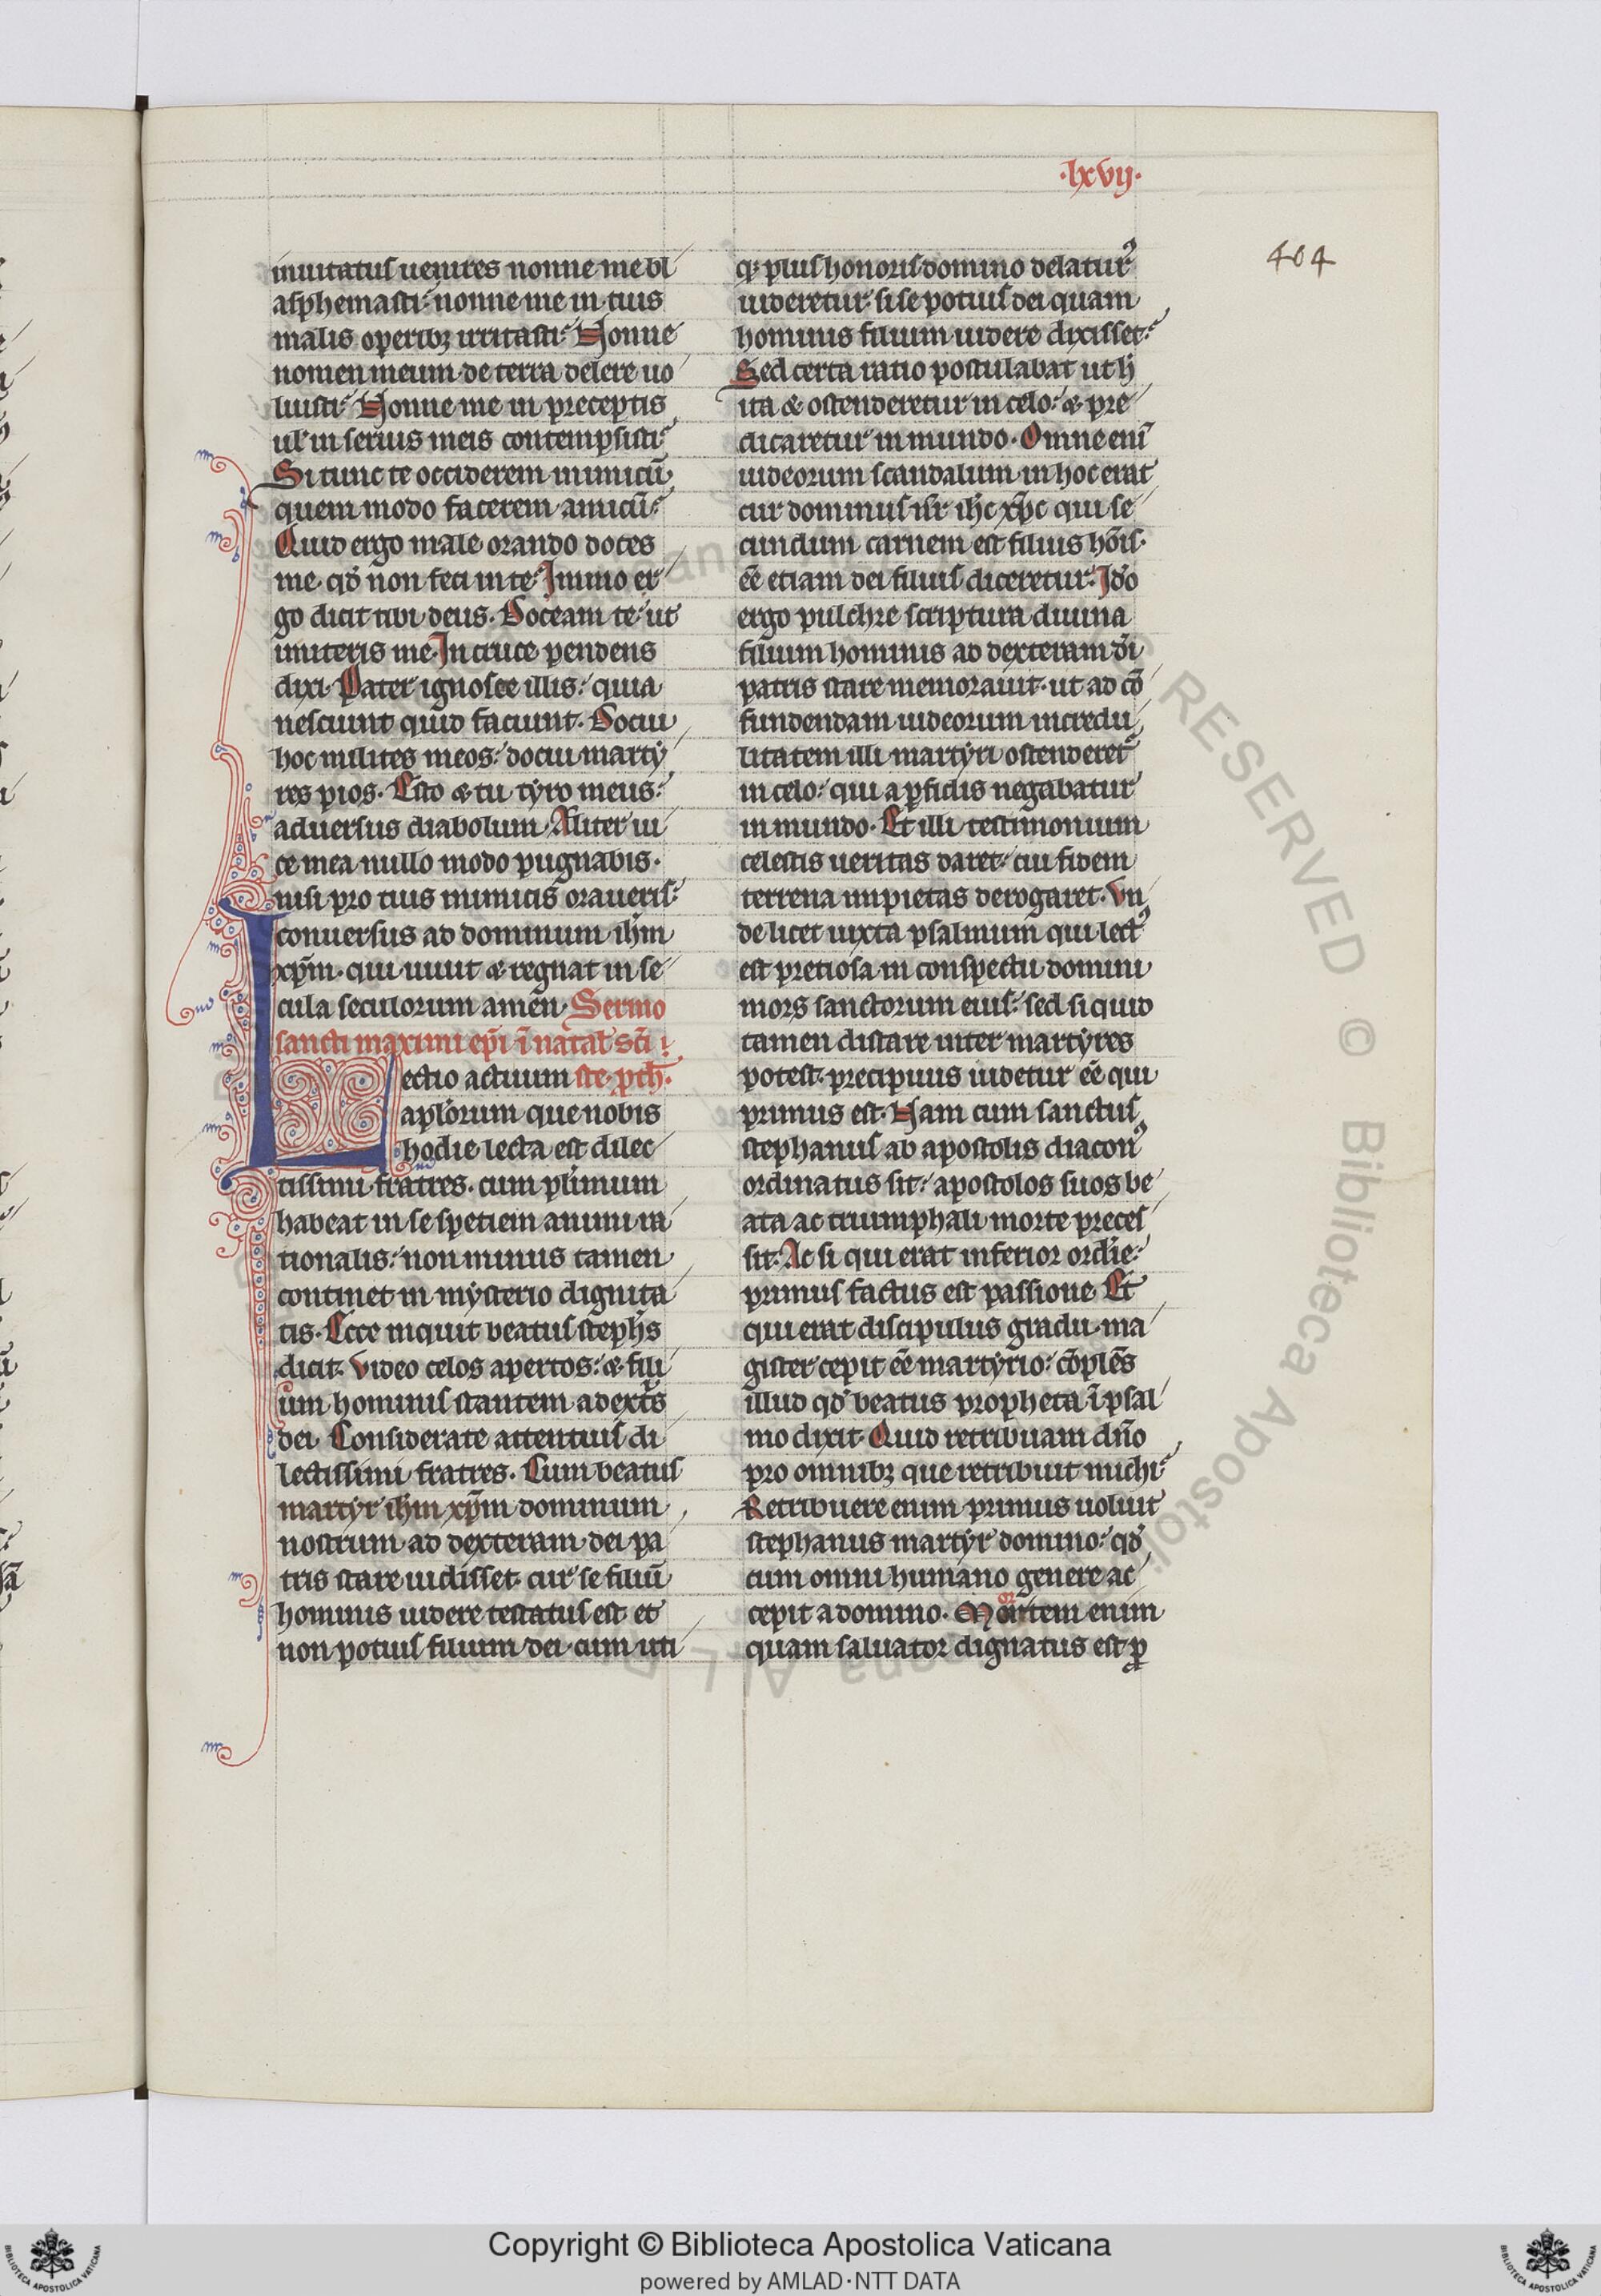 ·lxvij·
404
inuitatus uenires nonne me bl
asphemasti: nonne me in tuis
malis operibꝫ irritasti: Nonne
nomen meum de terra delere uo
luisti: Nonne me in preceptis
ul' in seruis meis contempsisti:
Si tunc te occiderem inimicū,
quem modo facerem amicū:
Quid ergo male orando doces
me. qđ non feci in te: Immo er
go dicit tibi deus. Doceam te: ut
imiteris me. In cruce pendens
dixi. Pater ignosce illis: quia
nesciunt quid faciunt. Docui
hoc milites meos: docui marty
res pios. Esto & tu tyro meus:
aduersus diabolum. Aliter ui
ce mea nullo modo pugnabis.
nisi pro tuis inimicis oraueris:
conuersus ad dominum ihm̄
xp̄m. qui uiuit & regnat in se
cula seculorum amen. Sermo
sancti maximi ep̄i ī natal' sc̄i
Lectio actuum ste. ꝓth̄.
apl'orum que nobis
hodie lecta est dilec
tissimi fratres. cum plrimum
habeat in se speciem animi ra
tionalis: non minus tamen
continet in mysterio dignita
tis. Ecce inquit beatus steph's
dicit. Video celos apertos: & fili
um hominis stantem a dext's
dei. Considerate attentius di
lectissimi fratres. Cum beatus
martyr ihm̄ xp̄m dominum
nostrum ad dexteram dei pa
tris stare uidisset. cur se filiū
hominis uidere testatus est et
non potius filium dei. cum uti
qꝫ plus honoris domino delatur
uideretur. si se potius dei quam
hominis filium uidere dixisset:
Sed certa ratio postulabat ut h̄
ita & ostenderetur in celo: & pre
dicaretur in mundo. Omne enī
iudeorum scandalum in hoc erat
cur dominus nr̄ ihc̄ xp̄c qui se
cundum carnem est filius hōis.
eē etiam dei filius diceretur: Idō
ergo pulchre scriptura diuina
filium hominis ad dexteram dī
patris stare memorauit. ut ad cō
fundendam iudeorum incredu
litatem illi martyri ostenderet'
in celo: qui a ꝑfidis negabatur
in mundo. Et illi testimonium
celestis ueritas daret. cui fidem
terrena impietas derogaret. Vn
de licet iuxta psalmum qui lect'
est pretiosa in conspectu domini
mors sanctorum eius: sed si quid
tamen distare inter martyres
potest. precipuus uidetur eē qui
primus est. Nam cum sanctus
stephanus ab apostolis diacon'
ordinatus sit: apostolos suos be
ata ac triumphali morte preces
sit. Ac si qui erat inferior ordīe:
primus factus est passione. Et
qui erat discipulus gradu. ma
gister cepit eē martyrio: cōplēs
illud qđ beatus propheta ī psal
mo dixit. Quid retribuam dn̄o
pro omnibꝫ que retribuit michi:
Retribuere enim primus uoluit
stephanus martyr domino: qđ
cum omni humano genere ac
cepit a domino. Mortem enim
quam saluator dignatus est ꝓ
Copyright © Biblioteca Apostolica Vaticana
powered by AMLAD·NTT DATA